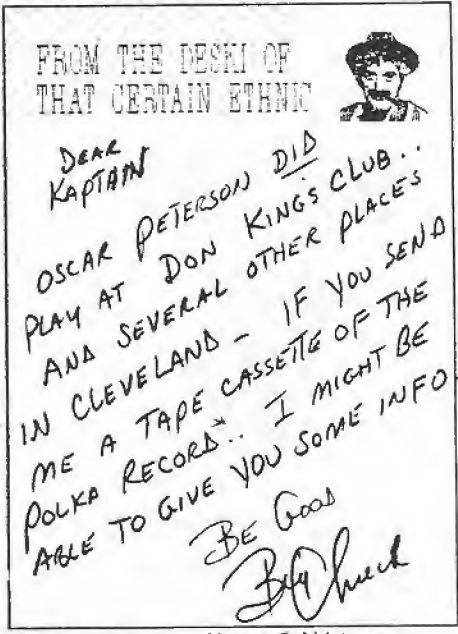 FROM THE DESKI OF
THAT CERTAIN ETHNIC
DEAR
KAPTAIN
OSCAR PETERSON DID
PLAY AT DON KING'S CLUB..
AND SEVERAL OTHER PLACES
IN CLEVELAND - IF YOU SEND
ME A TAPE CASSETTE OF THE
POLKA RECORD*.. I MIGHT BE
ABLE TO GIVE YOU SOME INFO
BE GOOD
Big Chuck